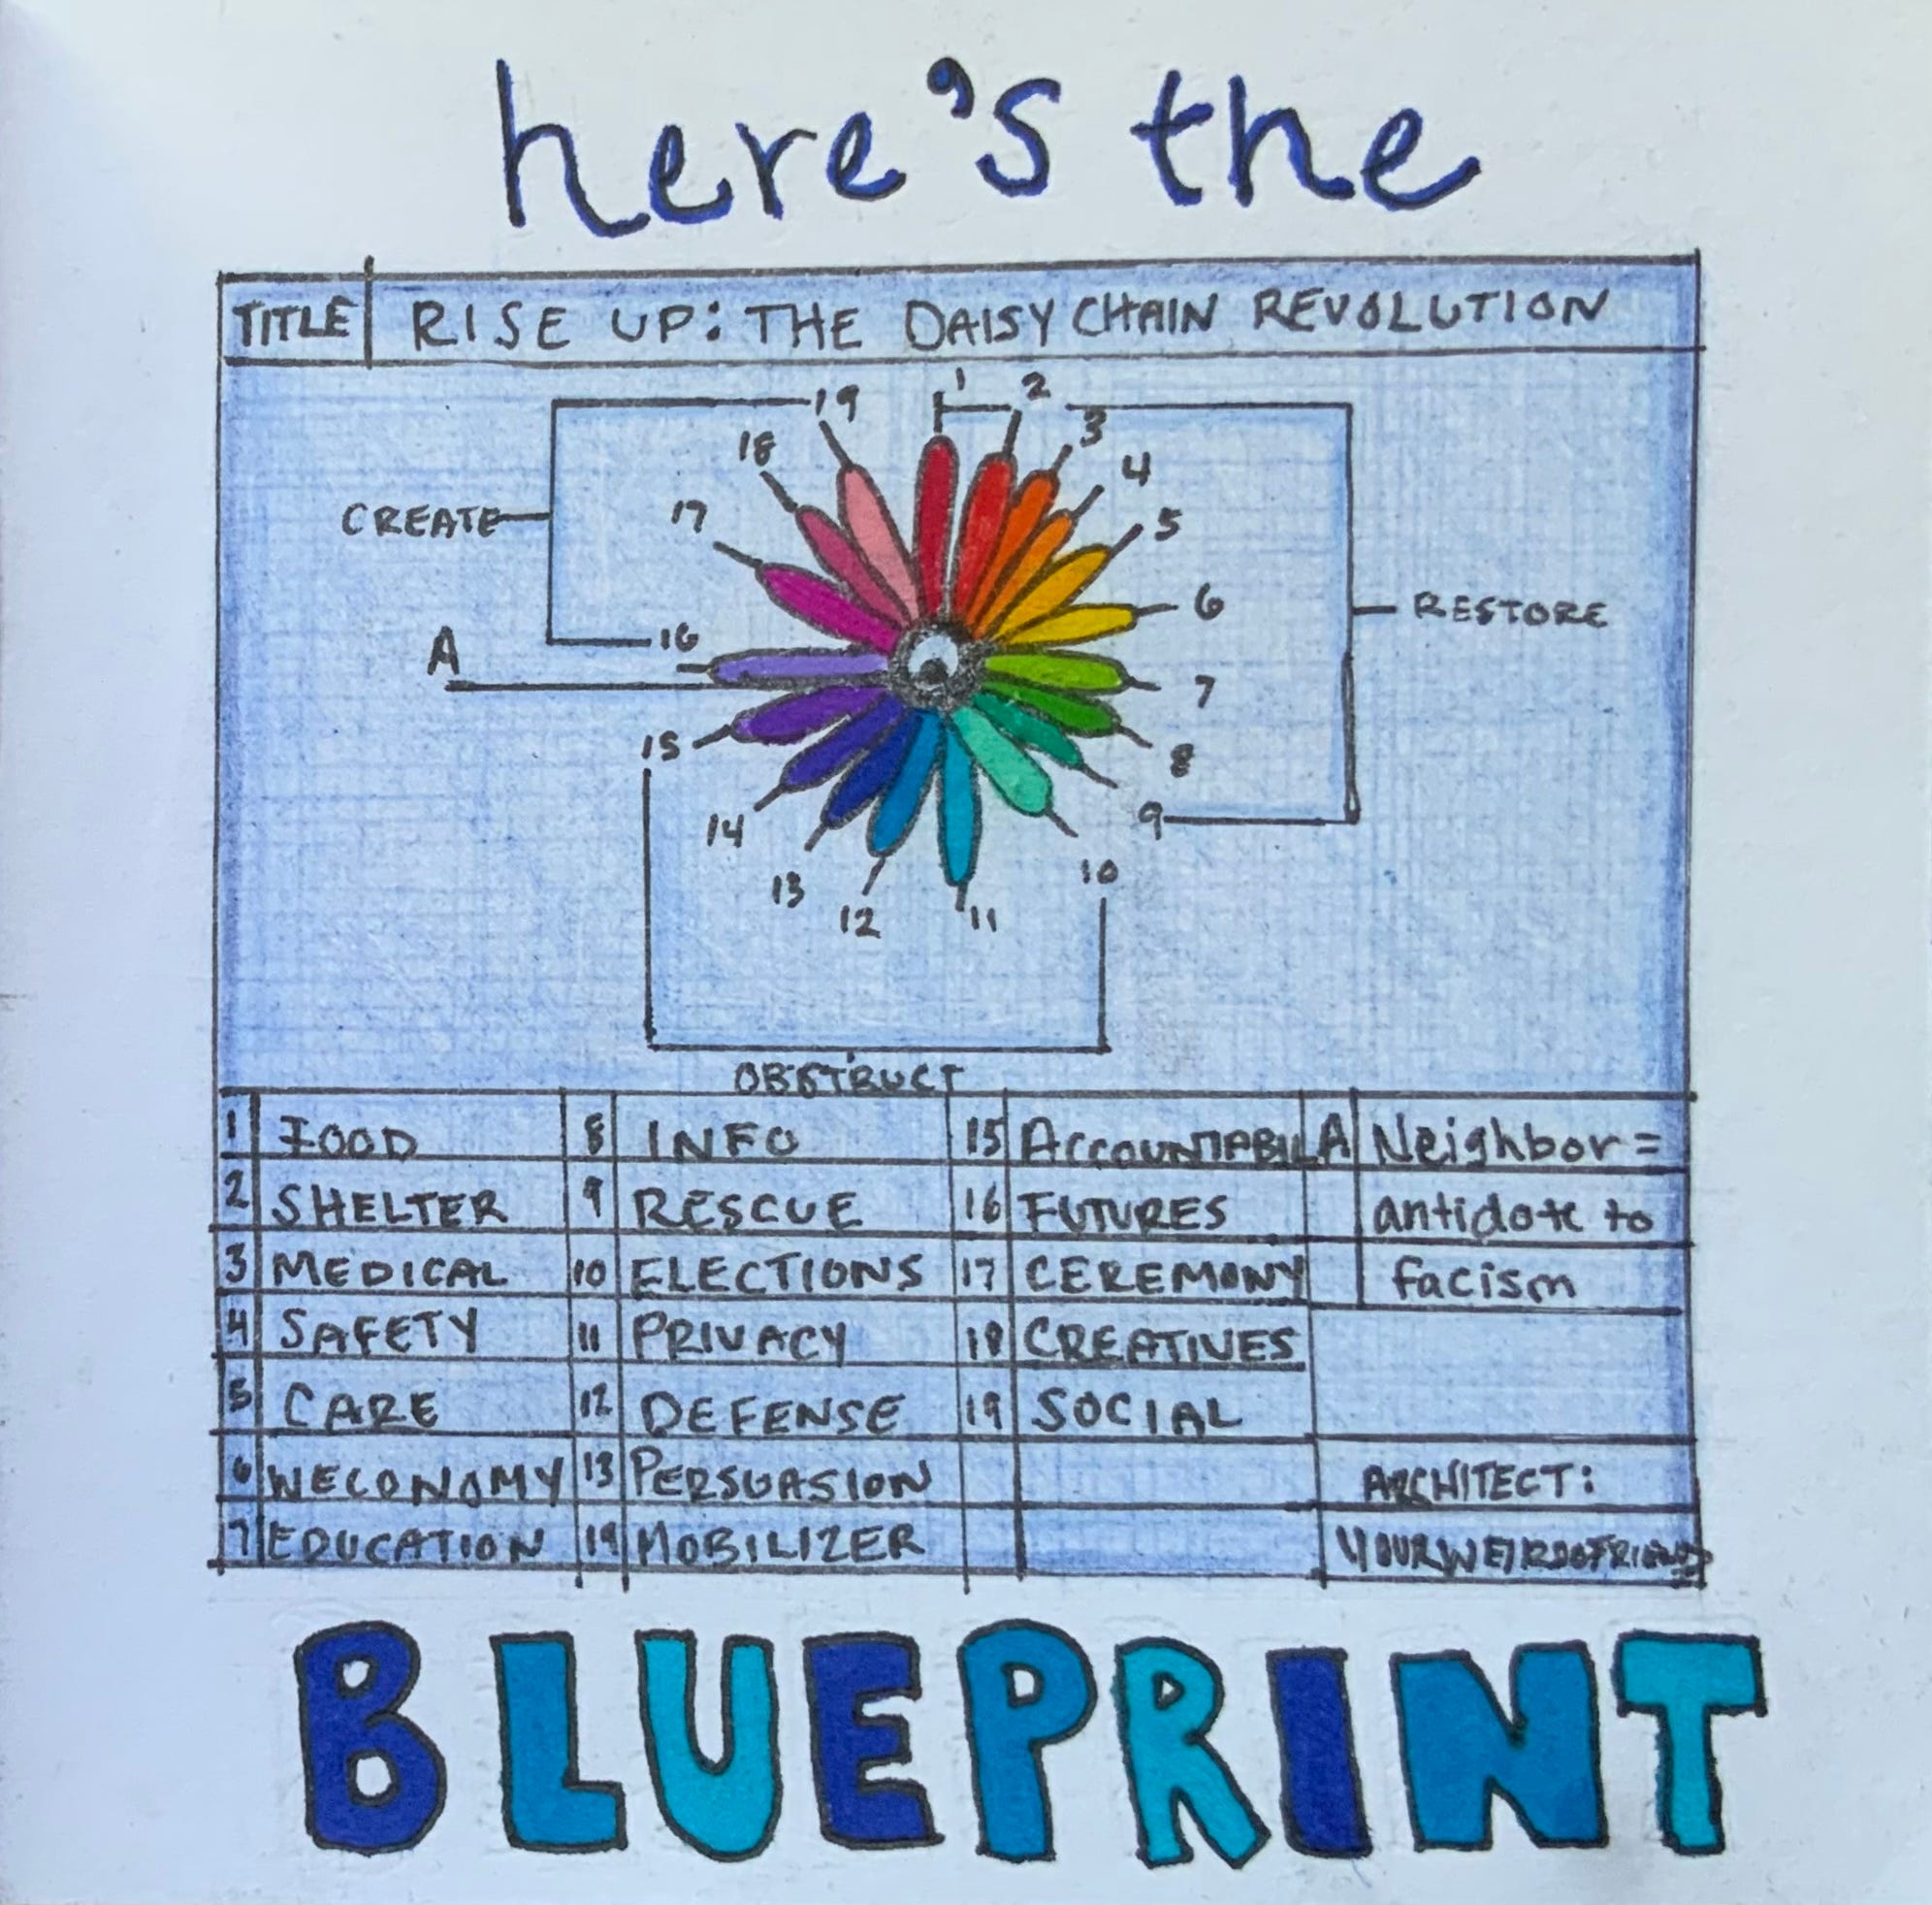 here's the
TITLE RISE UP: THE DAISY CHAIN REVOLUTION
1
2
3
4
5
6
7
8
9
10
11
12
13
14
15
16
17
18
19
A
CREATE
RESTORE
OBSTRUCT
1 FOOD 8 INFO 15 ACCOUNTABIL A Neighbor =
2 SHELTER 9 RESCUE 16 FUTURES antidote to
3 MEDICAL 10 ELECTIONS 17 CEREMONY facism
4 SAFETY 11 PRIVACY 18 CREATIVES
5 CARE 12 DEFENSE 19 SOCIAL
6 WECONOMY 13 PERSUASION ARCHITECT:
7 EDUCATION 14 MOBILIZER YOURWEIRDOFRIEND
BLUEPRINT